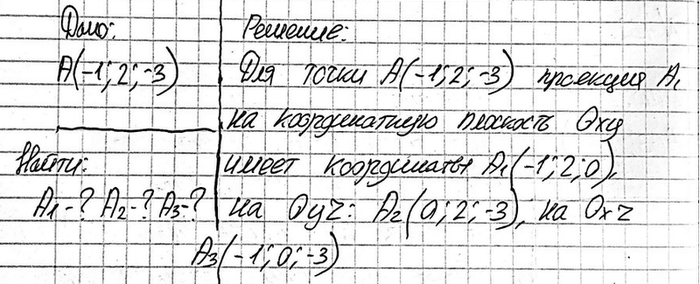 Дано:
A(-1; 2; -3)
Найти:
A₁-? A₂-? A₃-?
Решение:
Для точки A(-1; 2; -3) проекция A₁
на координатную плоскость Oxy
имеет координаты A₁(-1; 2; 0),
на Oyz: A₂(0; 2; -3), на Oxz
A₃(-1; 0; -3)